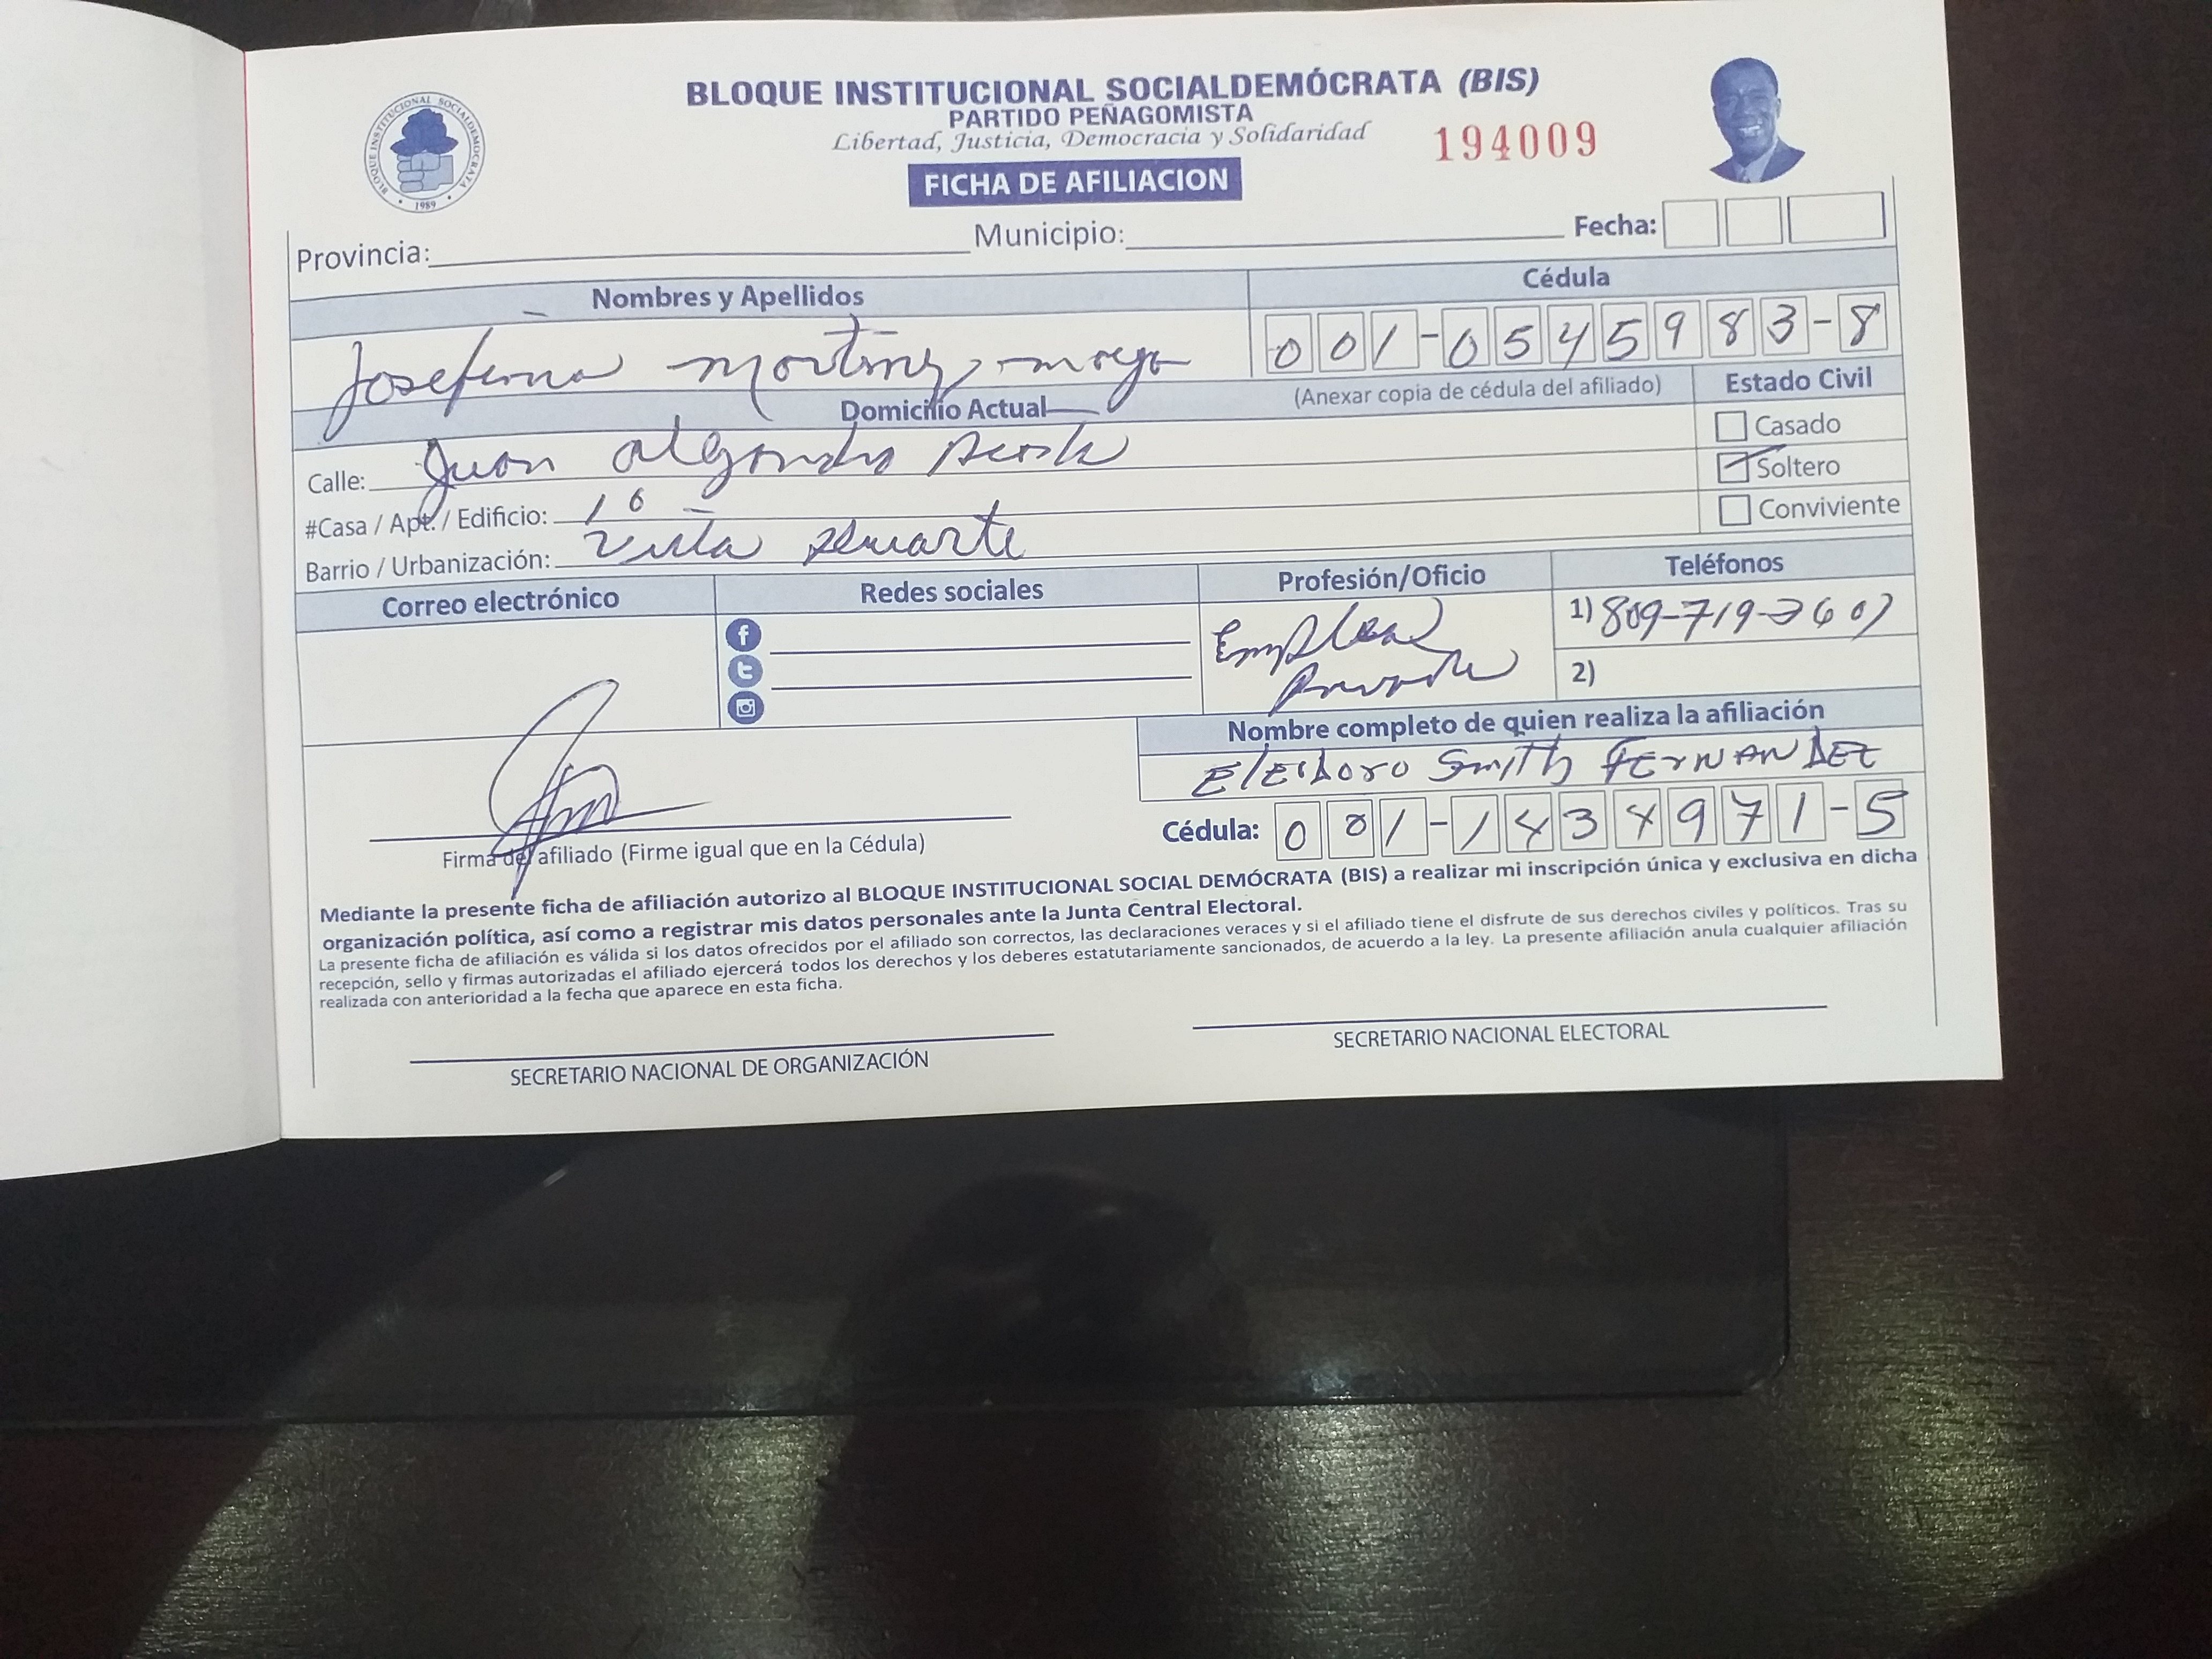 BLOQUE INSTITUCIONAL SOCIALDEMÓCRATA (BIS)
PARTIDO PEÑAGOMISTA
Libertad, Justicia, Democracia y Solidaridad
194009
BLOQUE INSTITUCIONAL SOCIALDEMOCRATA
1989
FICHA DE AFILIACION
Provincia: Municipio: Fecha:
Nombres y Apellidos Cédula
Josefina 001-0545983-8
Domicilio Actual (Anexar copia de cédula del afiliado) Estado Civil
Casado
Calle: Juan
Soltero
#Casa / Apt. / Edificio:
Conviviente
Barrio / Urbanización: Duarte
Correo electrónico Redes sociales Profesión/Oficio Teléfonos
1) 809-719-
2)
Nombre completo de quien realiza la afiliación
Smith FERNANDEZ
Cédula: 001-1434971-5
Firma del afiliado (Firme igual que en la Cédula)
Mediante la presente ficha de afiliación autorizo al BLOQUE INSTITUCIONAL SOCIAL DEMÓCRATA (BIS) a realizar mi inscripción única y exclusiva en dicha
organización política, así como a registrar mis datos personales ante la Junta Central Electoral.
La presente ficha de afiliación es válida si los datos ofrecidos por el afiliado son correctos, las declaraciones veraces y si el afiliado tiene el disfrute de sus derechos civiles y políticos. Tras su
recepción, sello y firmas autorizadas el afiliado ejercerá todos los derechos y los deberes estatutariamente sancionados, de acuerdo a la ley. La presente afiliación anula cualquier afiliación
realizada con anterioridad a la fecha que aparece en esta ficha.
SECRETARIO NACIONAL DE ORGANIZACIÓN
SECRETARIO NACIONAL ELECTORAL